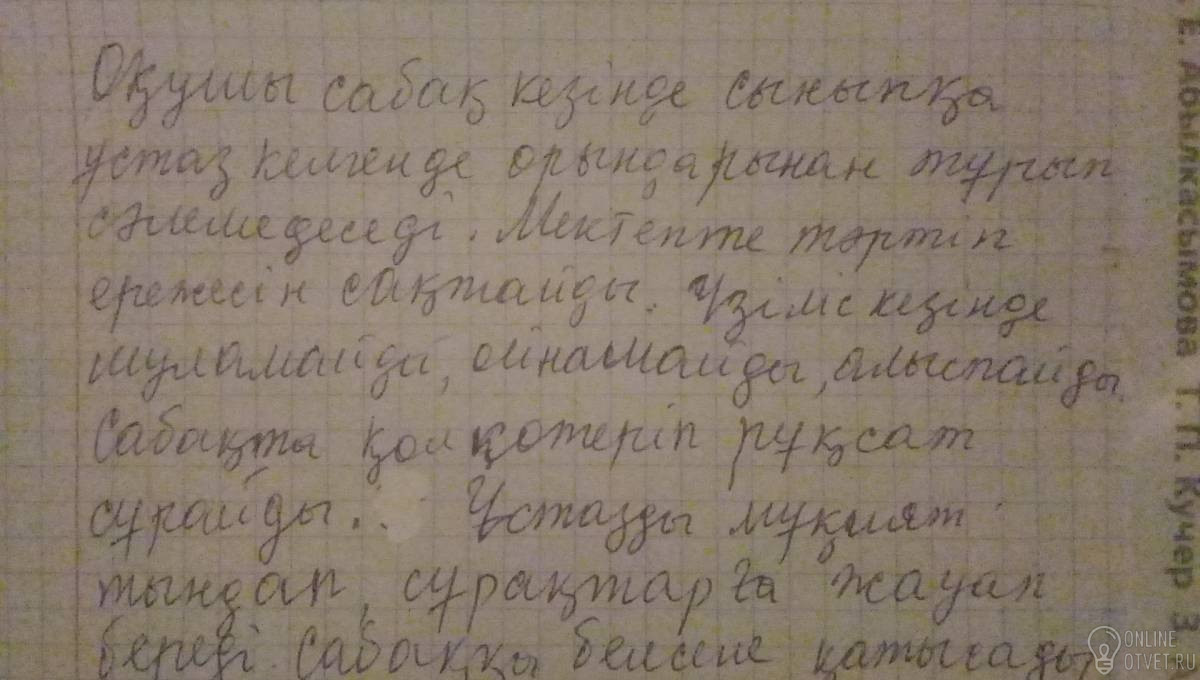 Оқушы сабақ кезінде сыныпқа
ұстаз келгенде орындарынан тұрып
сәлемедеседі. Мектепте тәртіп
ережесін сақтайды. Үзіліс кезінде
шуламайді, ойнамайды, алыспайды.
Сабақта қол қөтеріп рұқсат
сұрайды.. Ұстазды мұқият
тыңдап, сұрақтарға жауап
береді. Сабаққы белсене қатысады
Е. Абылкасымова Т. П. Кучер З.
ONLINE
OTVET.RU